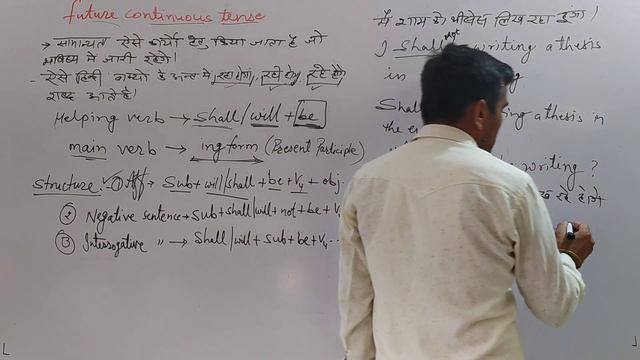 future continuous tense
→ सामान्यतः ऐसे कार्यो हेतु किया जाता है जो
भविष्य में जारी रहेंगे।
- ऐसे हिन्दी वाक्यो के अन्त में, रहा होगा, रही होगी, रहे होंगे
शब्द आते है।
Helping verb → Shall/will + be
main verb → ing form (Present Participle)
Structure:- ① Aff → Sub + will/shall + be + V₄ + obj.
② Negative sentence → Sub + shall/will + not + be + V
③ Interrogative " → Shall/will + sub + be + V₄ ...
मैं शाम को थीसिस लिख रहा हूंगा।
I Shall not writing a thesis
in
Shall a thesis in
the
writing ?
रहे होंगे